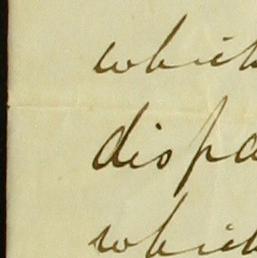 which
dispa
which